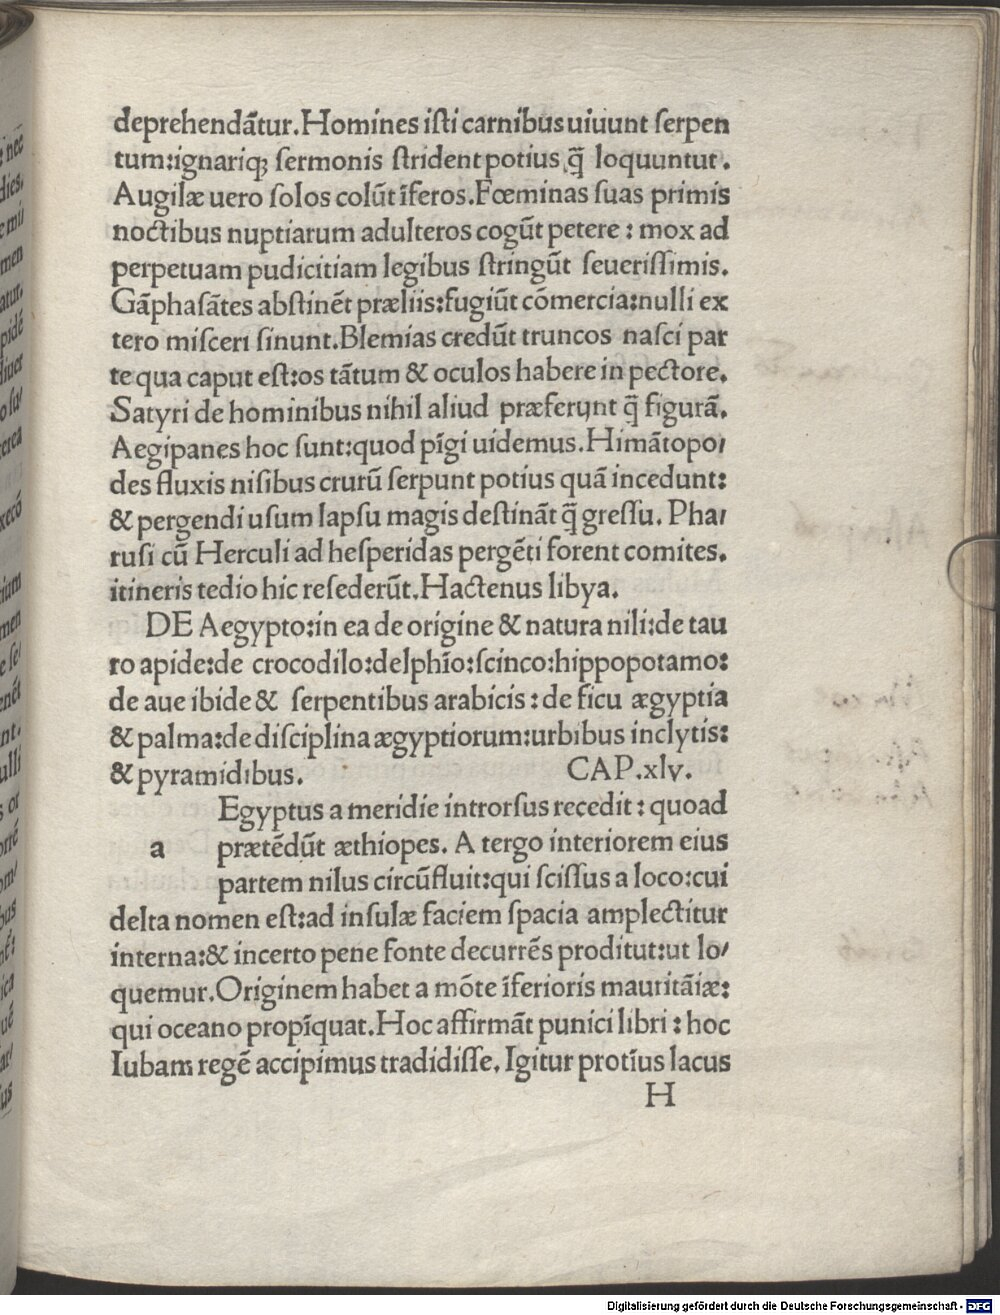 deprehendãtur.Homines iſti carnibus uiuunt ſerpen
tum:ignariqꝫ ſermonis ſtrident potius q̃ loquuntur.
Augilæ uero ſolos colũt ĩferos.Fœminas ſuas primis
noctibus nuptiarum adulteros cogũt petere : mox ad
perpetuam pudicitiam legibus ſtringũt ſeueriſſimis.
Gãphaſãtes abſtinẽt præliis:fugiũt cõmercia:nulli ex
tero miſceri ſinunt.Blemias credũt truncos naſci par
te qua caput eſt:os tãtum & oculos habere in pectore.
Satyri de hominibus nihil aliud præferunt q̃ figurã.
Aegipanes hoc ſunt:quod pĩgi uidemus.Himãtopo/
des fluxis niſibus crurũ ſerpunt potius quã incedunt:
& pergendi uſum lapſu magis deſtinãt q̃ greſſu. Pha/
ruſi cũ Herculi ad heſperidas pergẽti forent comites.
itineris tedio hic reſederũt.Hactenus libya.
DE Aegypto:in ea de origine & natura nili:de tau
ro apide:de crocodilo:delphĩo:ſcinco:hippopotamo:
de aue ibide & ſerpentibus arabicis : de ficu ægyptia
& palma:de diſciplina ægyptiorum:urbibus inclytis:
& pyramidibus. CAP.xlv.
Egyptus a meridie introrſus recedit : quoad
a prætẽdũt æthiopes. A tergo interiorem eius
partem nilus circũfluit:qui ſciſſus a loco:cui
delta nomen eſt:ad inſulæ faciem ſpacia amplectitur
interna:& incerto pene fonte decurrẽs proditut:ut lo/
quemur.Originem habet a mõte ĩferioris mauritãiæ:
qui oceano propĩquat.Hoc affirmãt punici libri : hoc
Iubam regẽ accipimus tradidiſſe. Igitur protĩus lacus
H
Digitalisierung gefördert durch die Deutsche Forschungsgemeinschaft - DFG